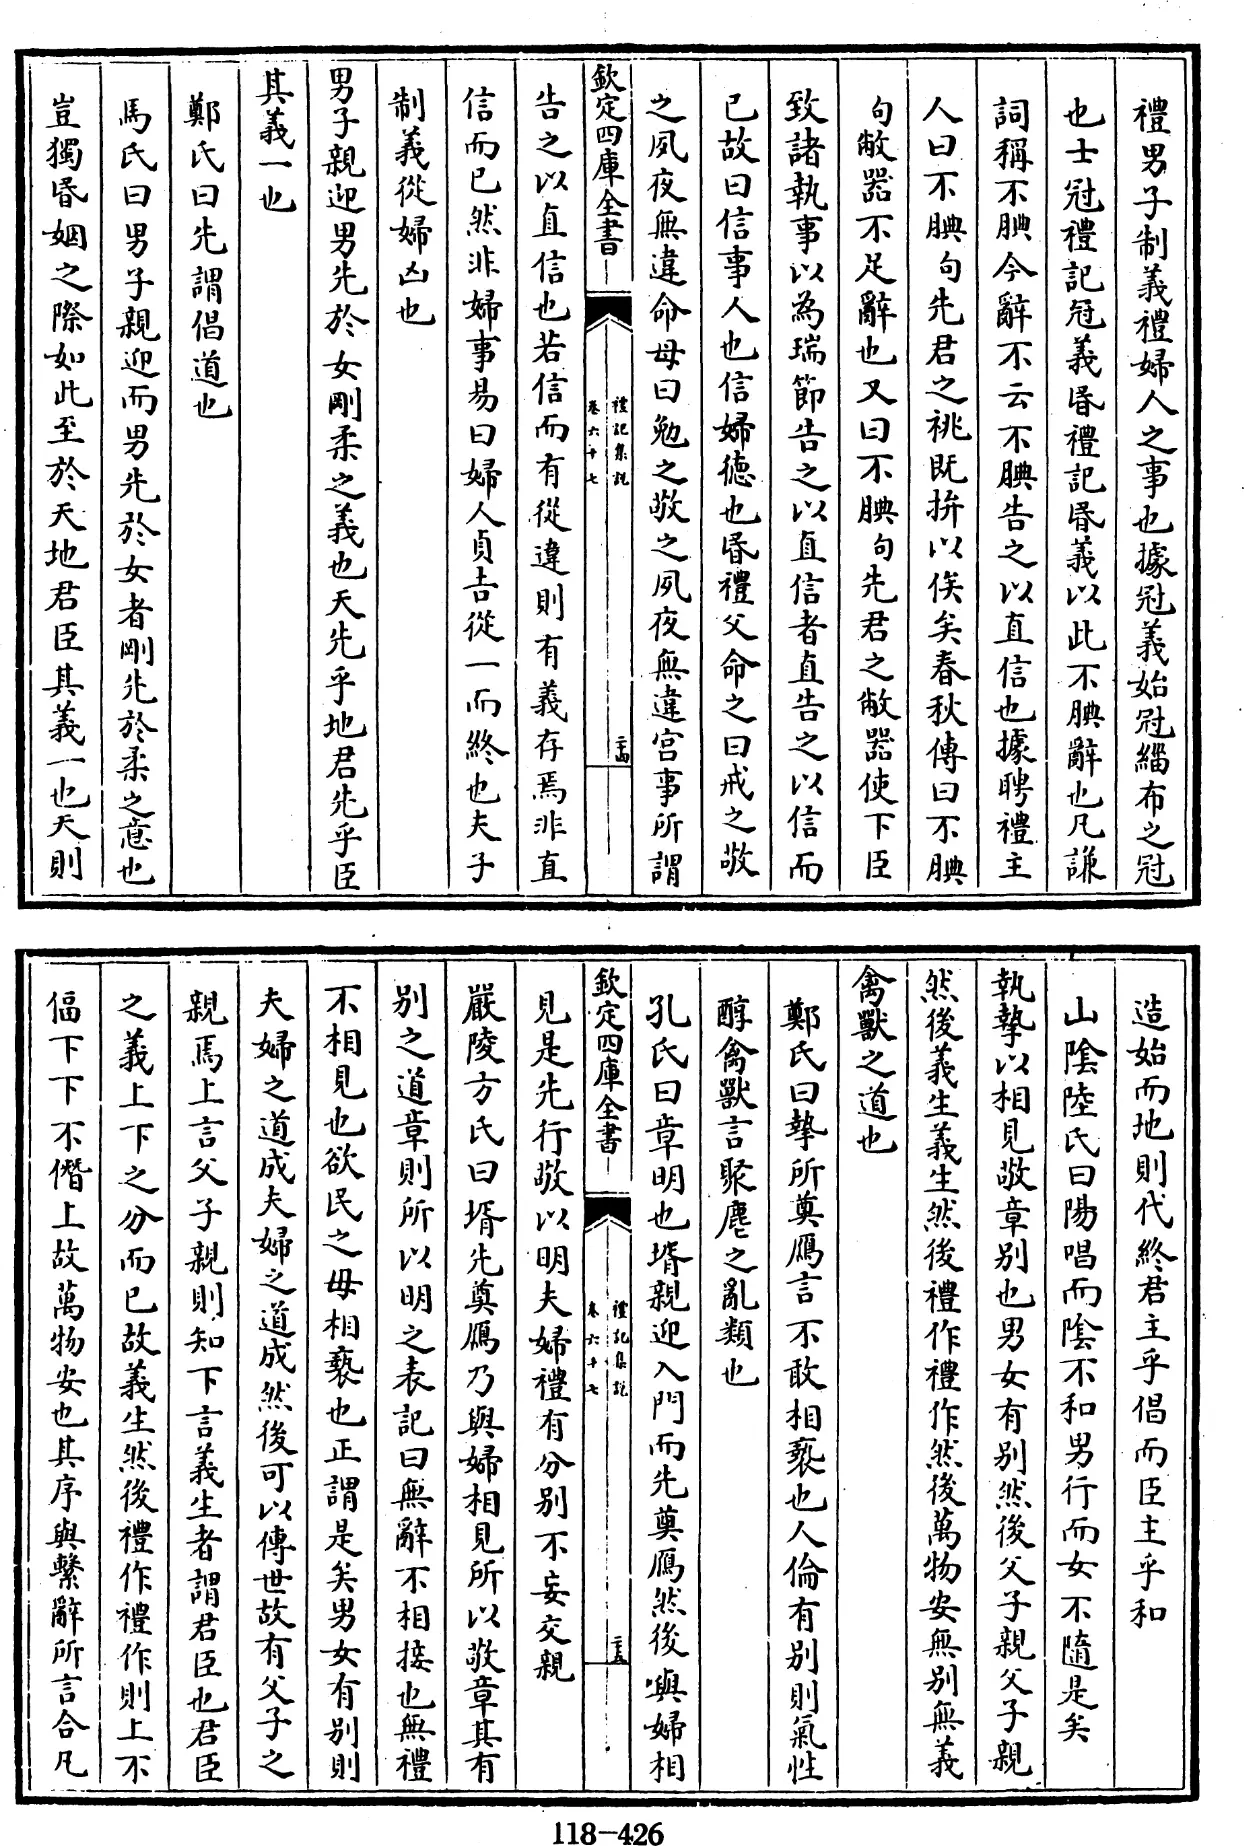 禮男子制義禮婦人之事也據冠義始冠緇布之冠
也士冠禮記冠義昏禮記昏義以此不腆辭也凡謙
詞稱不腆今辭不云不腆告之以直信也據聘禮主
人曰不腆句先君之祧既拚以俟矣春秋傳曰不腆
句敝器不足辭也又曰不腆句先君之敝器使下臣
致諸執事以為瑞節告之以直信者直告之以信而
已故曰信事人也信婦德也昏禮父命之曰戒之敬
之夙夜無違命母曰勉之敬之夙夜無違宫事所謂
欽定四庫全書
禮記集説
卷六十七
二十四
告之以直信也若信而有從違則有義存焉非直
信而已然非婦事易曰婦人貞吉從一而終也夫子
制義從婦凶也
男子親迎男先於女剛柔之義也天先乎地君先乎臣
其義一也
鄭氏曰先謂倡道也
馬氏曰男子親迎而男先於女者剛先於柔之意也
豈獨昏姻之際如此至於天地君臣其義一也天則
造始而地則代終君主乎倡而臣主乎和
山陰陸氏曰陽唱而陰不和男行而女不隨是矣
執摯以相見敬章别也男女有别然後父子親父子親
然後義生義生然後禮作禮作然後萬物安無别無義
禽獸之道也
鄭氏曰摯所奠鴈言不敢相褻也人倫有别則氣性
醇禽獸言聚麀之亂類也
孔氏曰章明也壻親迎入門而先奠鴈然後與婦相
欽定四庫全書
禮記集説
卷六十七
二十五
見是先行敬以明夫婦禮有分别不妄交親
嚴陵方氏曰壻先奠鴈乃與婦相見所以敬章其有
别之道章則所以明之表記曰無辭不相接也無禮
不相見也欲民之毋相褻也正謂是矣男女有别則
夫婦之道成夫婦之道成然後可以傳世故有父子之
親焉上言父子親則知下言義生者謂君臣也君臣
之義上下之分而已故義生然後禮作禮作則上不
偪下下不僭上故萬物安也其序與繫辭所言合凡
118-426